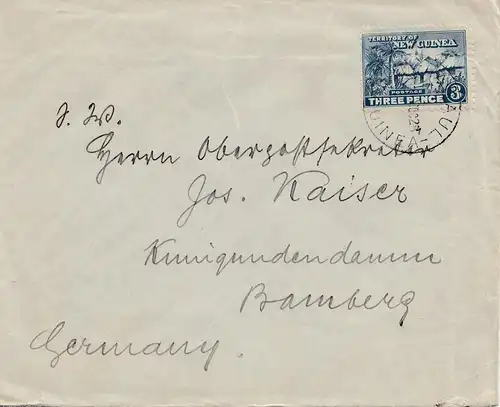 TERRITORY OF
NEW GUINEA
POSTAGE
THREE PENCE 3d
AUL
UINEA
S. W.
Herrn Oberpostsekretär
Jos. Kaiser
Kunigundendamm
Bamberg
Germany.